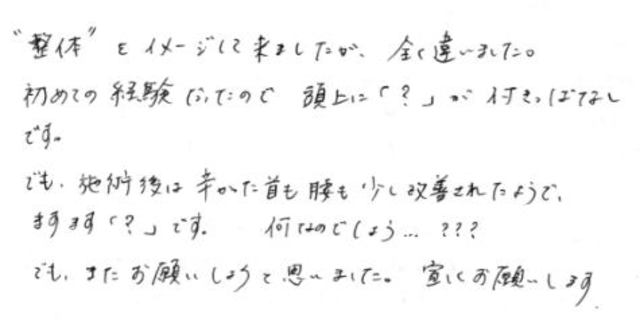 "整体" をイメージして来ましたが、全く違いました。
初めての経験だったので 頭上に「?」が付きっぱなし
です。
でも、施術後は辛かった首も腰も少し改善されたようで、
ますます「?」です。 何なのでしょう… ???
でも、またお願いしようと思いました。宜しくお願いします